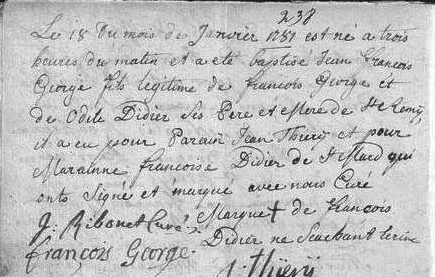 238
Le 18 Du mois de Janvier 1787 est né a trois
heures du matin et a eté baptisé Jean François
George fils légitime de francois George et
de Odile Didier Ses Pere et Mere de Ste Remy
il a eu pour Parain Jean Thiery et pour
Marainne francoise Didier de St Mard qui
onts Signé et marqué avec nous Curé
J. Ribonet Curé Marque † de francois
françois George Didier ne Scachant
J Thiery